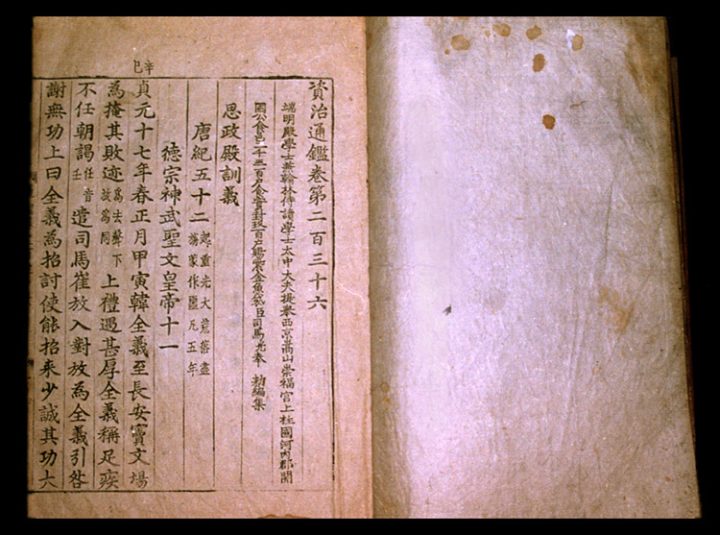 資治通鑑卷第二百三十六
端明殿學士兼翰林侍讀學士太中大夫提舉西京嵩山崇福宮上柱國河內郡開
國公食邑二千三百戶食實封玖百戶賜紫金魚袋臣司馬光奉 勑編集
思政殿訓義
唐紀五十二 起重光大荒落盡旃蒙作噩凡五年
德宗神武聖文皇帝十一
辛巳
貞元十七年春正月甲寅韓全義至長安竇文場
為掩其敗迹 為去聲下故為同 上禮遇甚厚全義稱足疾
不任朝謁 任音壬 遣司馬崔放入對放為全義引咎
謝無功上曰全義為招討使能招来少誠其功大